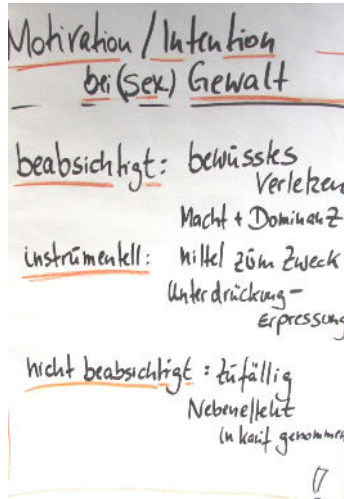 Motivation / Intention
bei (sex) Gewalt
beabsichtigt: bewusstes
Verletzen
Macht + Dominanz
instrumentell: Mittel zum Zweck
Unterdrückung -
Erpressung
nicht beabsichtigt: zufällig
Nebeneffekt
in kauf genommen
!